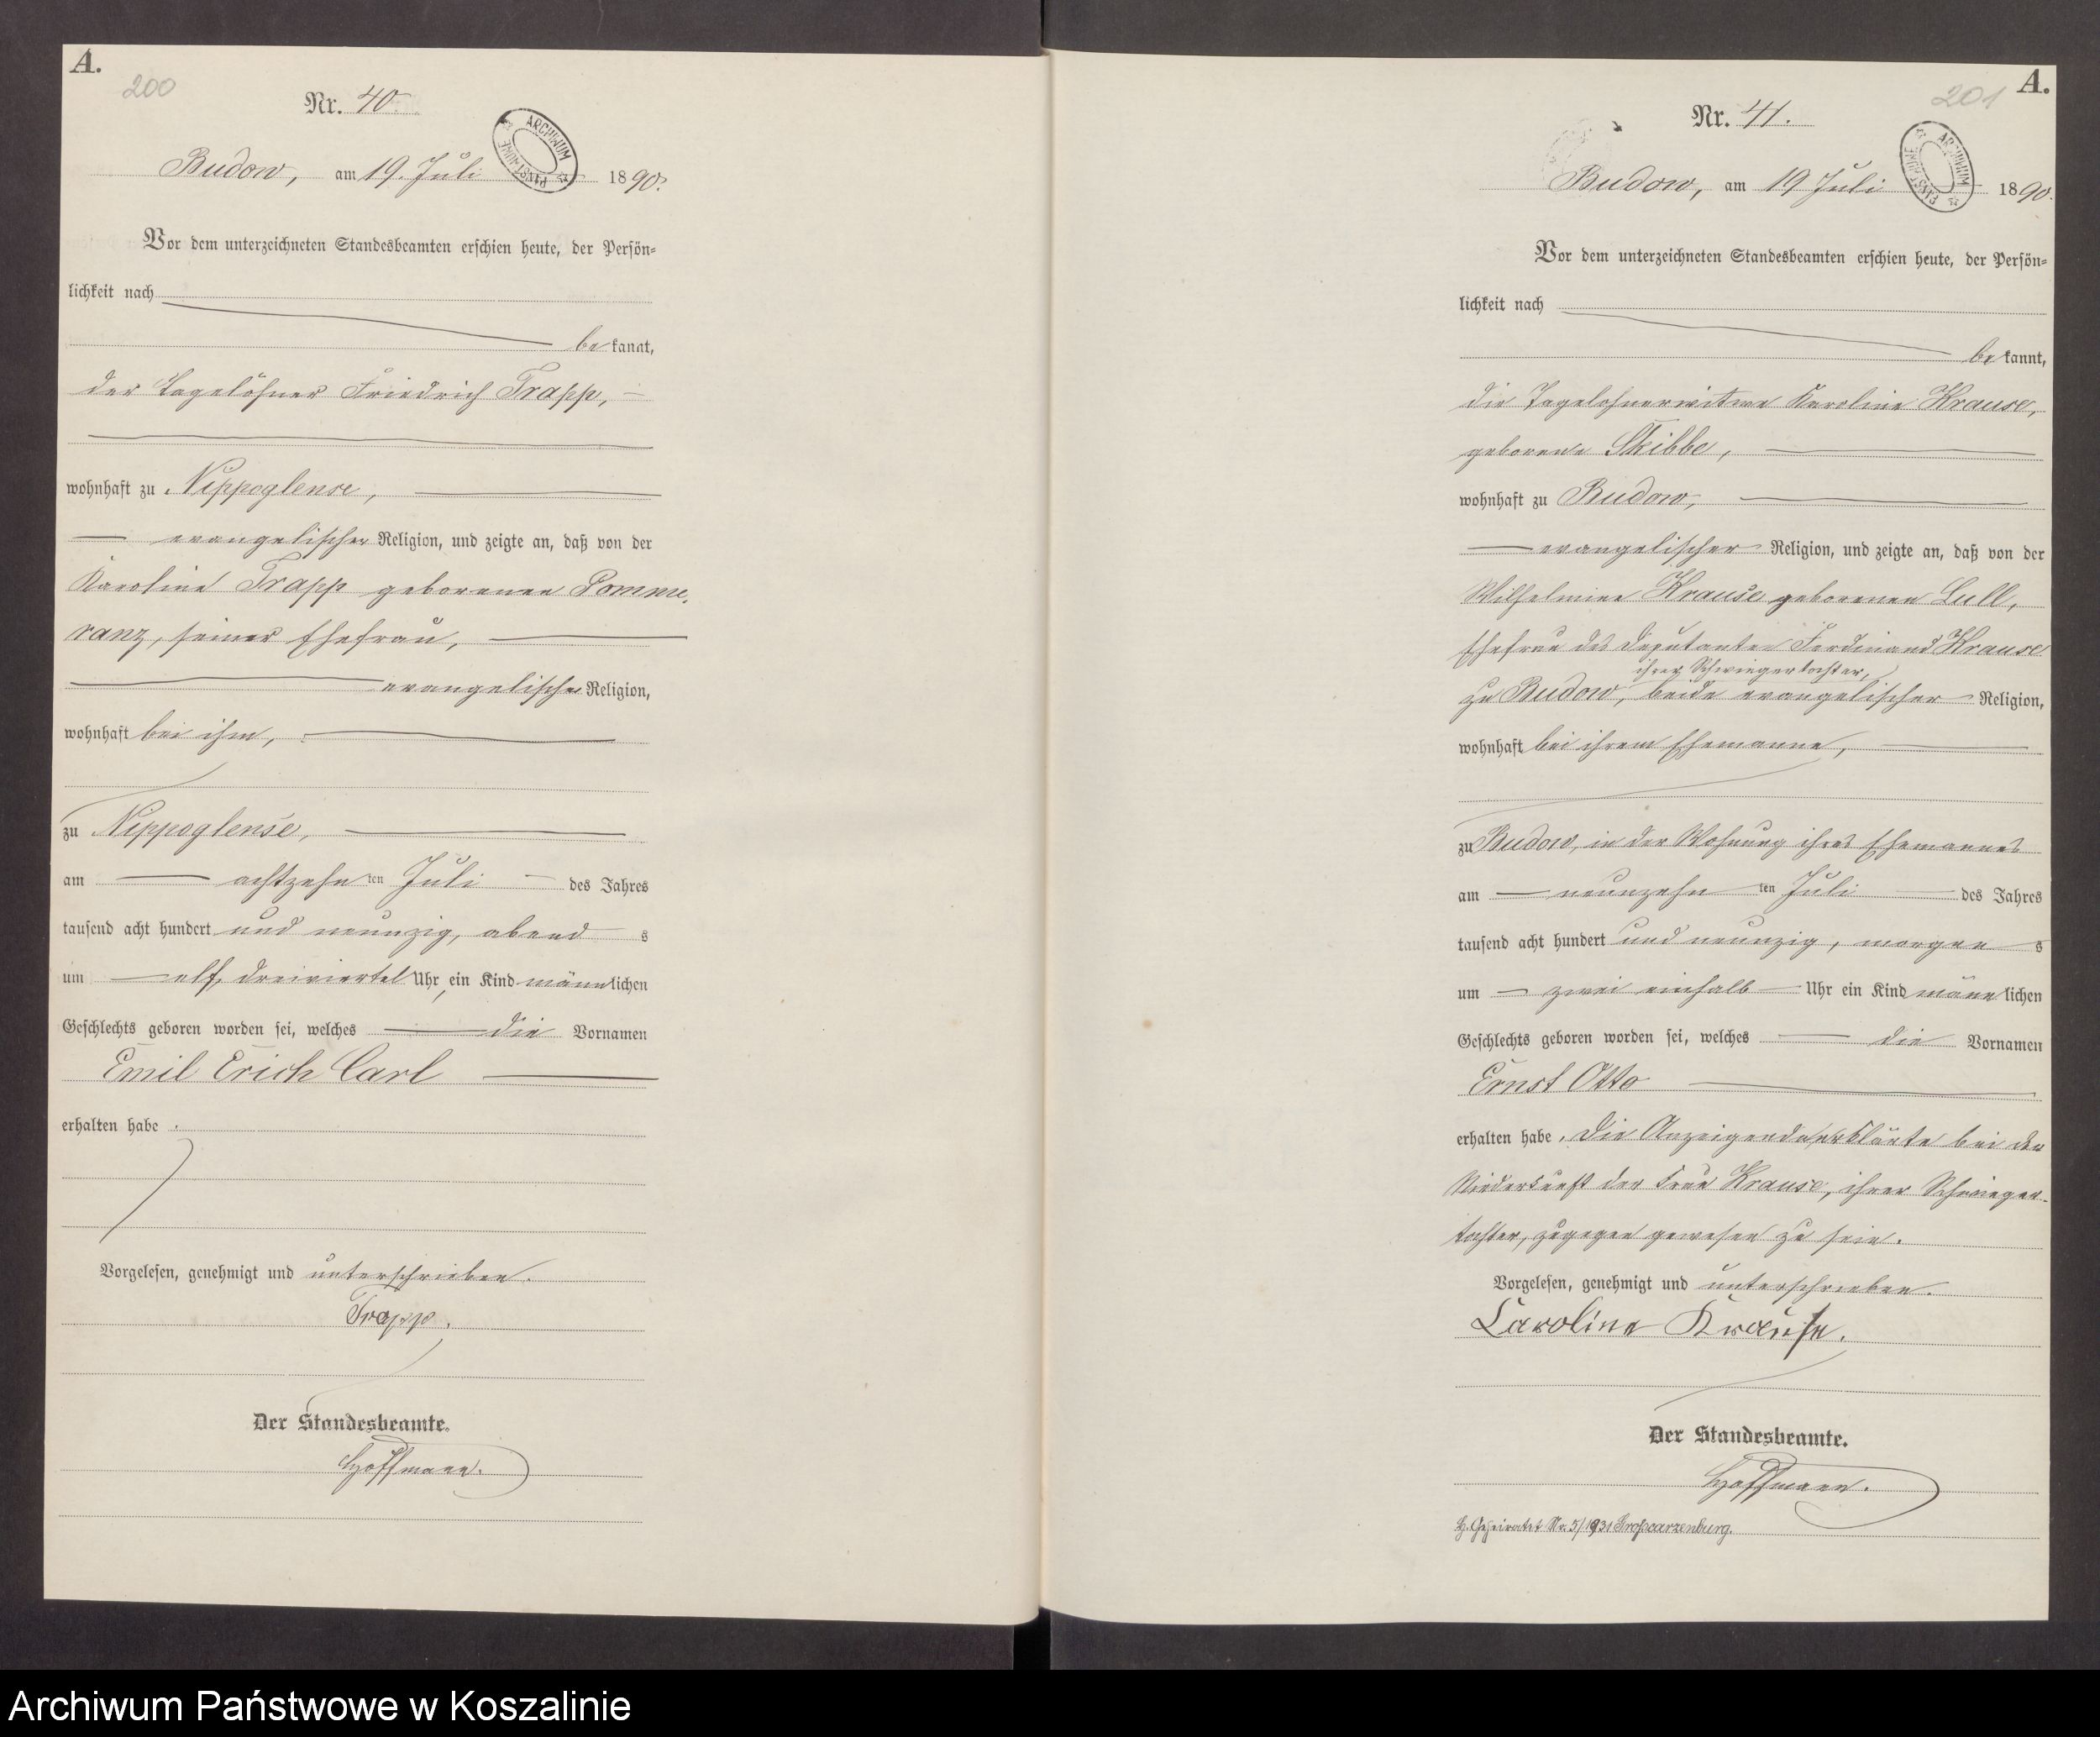 A.
200
Nr. 40.
ARCHIWUM PAŃSTWOWE
Budow, am 19. Juli 1890.
Vor dem unterzeichneten Standesbeamten erschien heute, der Persön=
lichkeit nach
be kannt,
der Tagelöhner Friedrich Trapp,
wohnhaft zu Nippoglense,
evangelischer Religion, und zeigte an, daß von der
Karoline Trapp geborenen Pomme-
ranz, seiner Ehefrau,
evangelischer Religion,
wohnhaft bei ihm,
zu Nippoglense,
am achtzehn ten Juli des Jahres
tausend acht hundert und neunzig, abend s
um elf dreiviertel Uhr, ein Kind männ lichen
Geschlechts geboren worden sei, welches die Vornamen
Emil Erich Carl
erhalten habe.
Vorgelesen, genehmigt und unterschrieben.
Trapp.
Der Standesbeamte.
Hoffmann.
A.
201
Nr. 41.
ARCHIWUM PAŃSTWOWE
Budow, am 19 Juli 1890.
Vor dem unterzeichneten Standesbeamten erschien heute, der Persön=
lichkeit nach
be kannt,
die Tagelöhnerwitwe Karoline Krause,
geborene Skibbe,
wohnhaft zu Budow,
evangelischer Religion, und zeigte an, daß von der
Wilhelmine Krause geborenen Lull,
Ehefrau des Deputanten Ferdinand Krause
ihrer Schwiegertochter,
zu Budow, beide evangelischer Religion,
wohnhaft bei ihrem Ehemanne,
zu Budow, in der Wohnung ihres Ehemannes
am neunzehn ten Juli des Jahres
tausend acht hundert und neunzig, morgen s
um zwei einhalb Uhr ein Kind männ lichen
Geschlechts geboren worden sei, welches die Vornamen
Ernst Otto
erhalten habe. Die Anzeigende erklärte bei der
Niederkunft der Frau Krause, ihrer Schwieger-
tochter, zugegen gewesen zu sein.
Vorgelesen, genehmigt und unterschrieben.
Caroline Krause.
Der Standesbeamte.
Hoffmann.
Geheiratet Nr. 5/1931 Großcarzenburg.
Archiwum Państwowe w Koszalinie